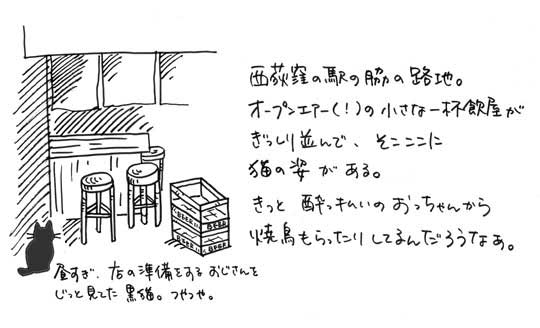 西荻窪の駅の脇の路地。
オープンエアー(！)の小さな一杯飲屋が
ぎっしり並んで、そこここに
猫の姿がある。
きっと 酔っぱらいの おっちゃんから
焼鳥もらったりしてるんだろうなぁ。
BEER
BEER
BEER
BEER
昼すぎ、店の準備をするおじさんを
じっと見てた黒猫。つやつや。